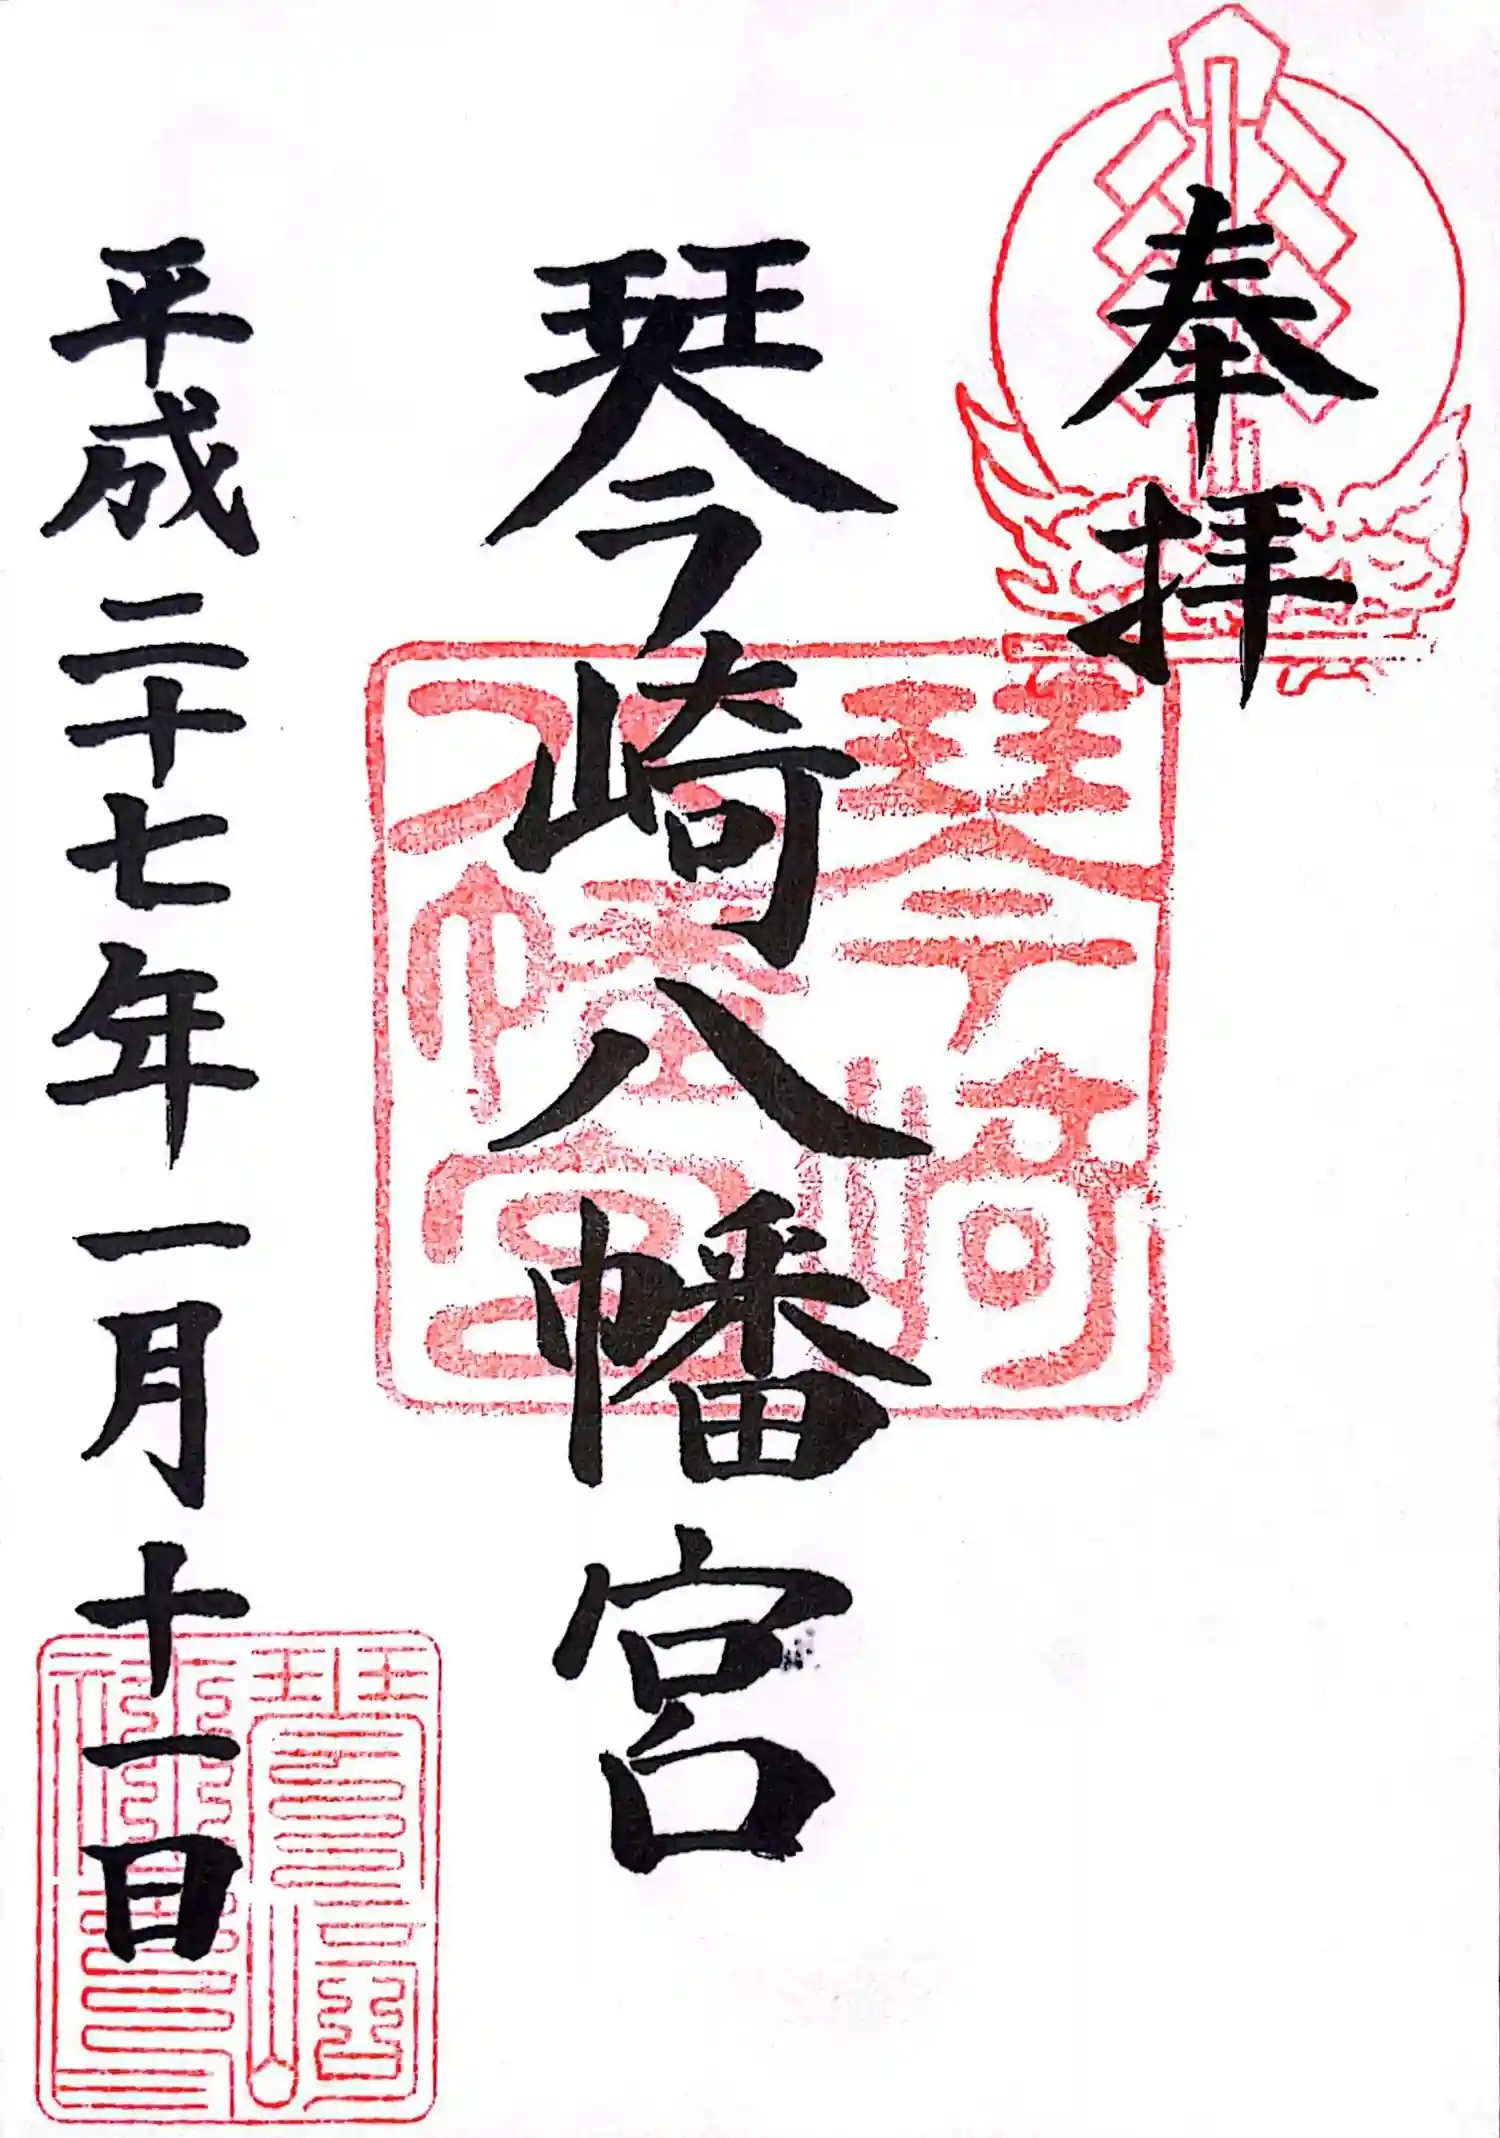 奉拝
琴崎八幡宮
平成二十七年一月十一日
琴崎
八幡宮